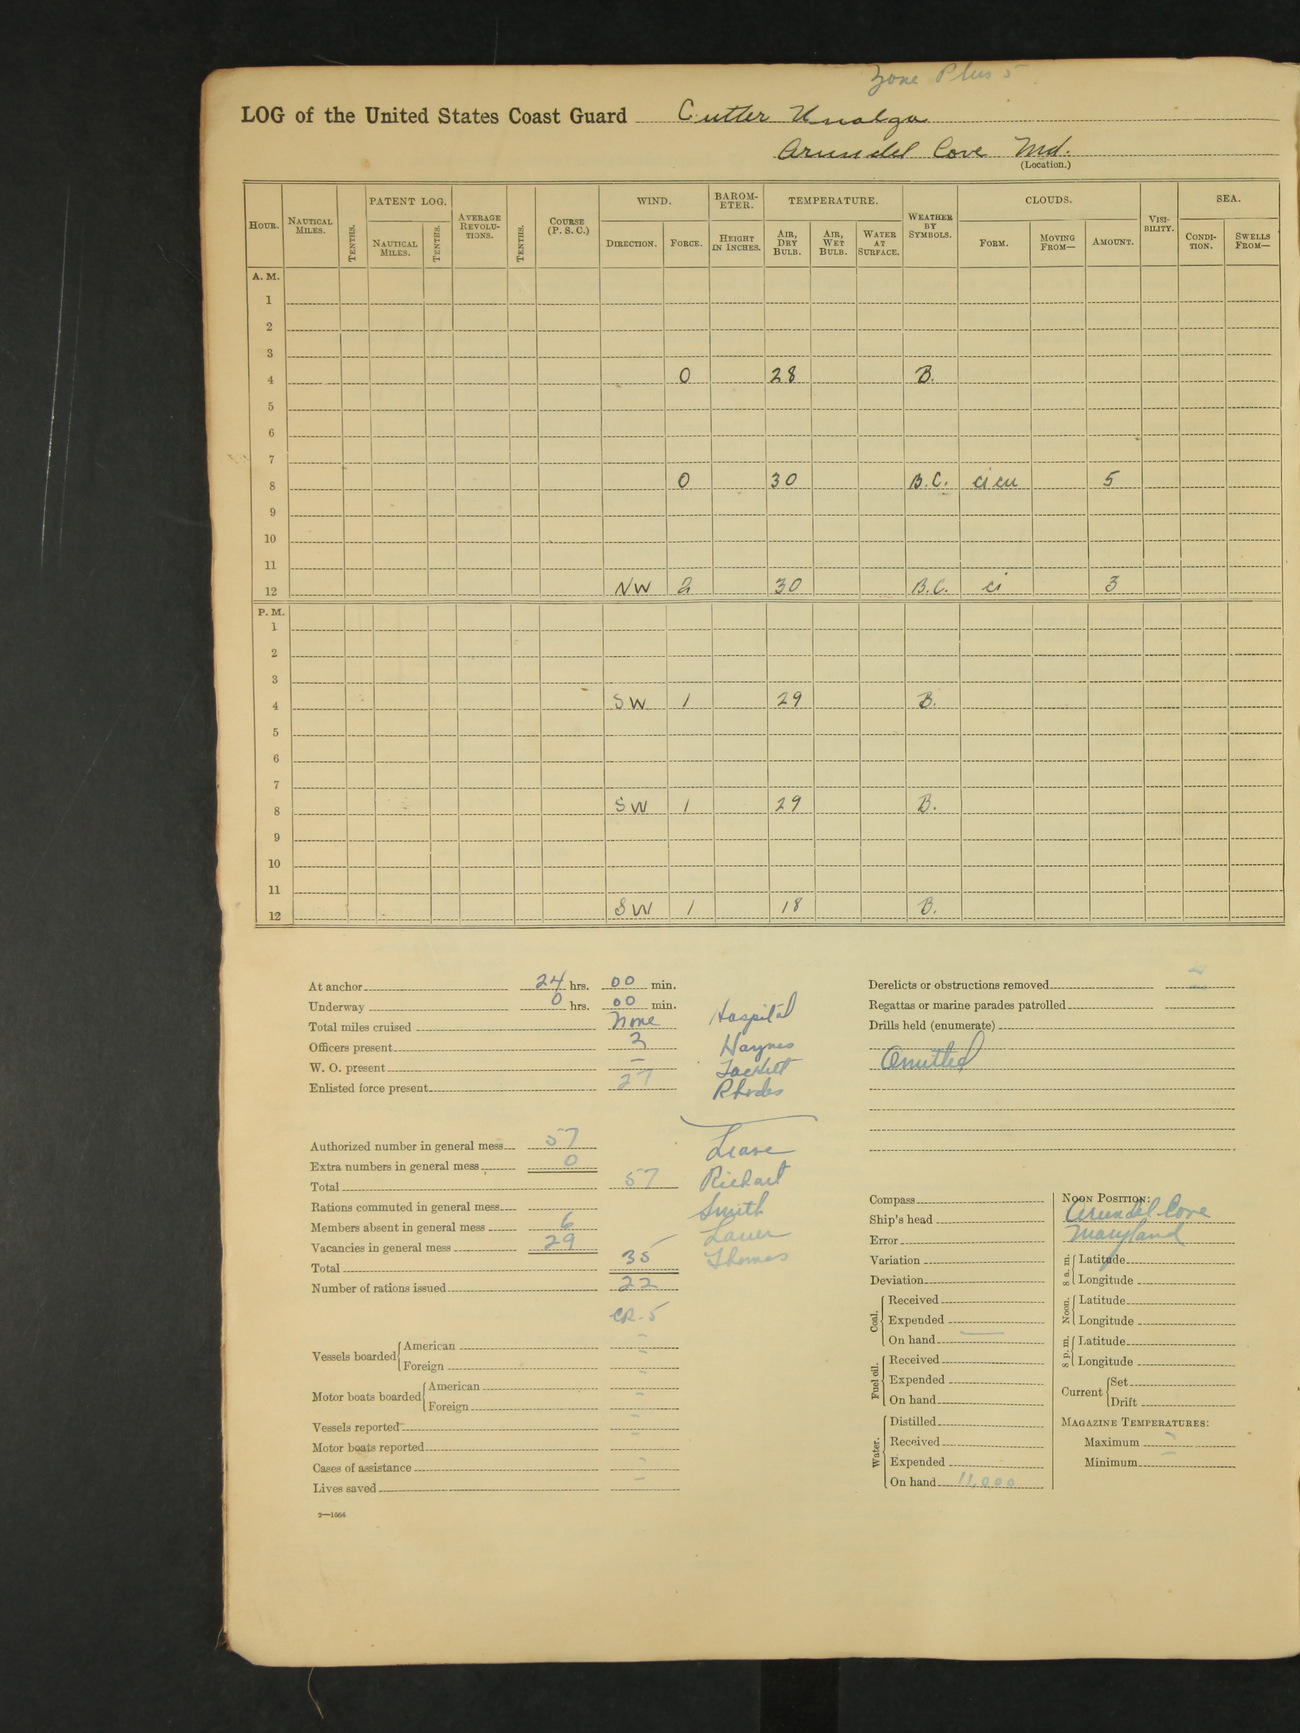 Zone Plus 5
LOG of the United States Coast Guard Cutter Unalga
Arundel Cove Md.
(Location.)
HOUR. NAUTICAL MILES. TENTHS. PATENT LOG. NAUTICAL MILES. TENTHS. AVERAGE REVOLUTIONS. TENTHS. COURSE (P. S. C.) WIND. DIRECTION. FORCE. BAROMETER. HEIGHT IN INCHES. TEMPERATURE. AIR, DRY BULB. AIR, WET BULB. WATER AT SURFACE. WEATHER BY SYMBOLS. CLOUDS. FORM. MOVING FROM— AMOUNT. VISIBILITY. SEA. CONDITION. SWELLS FROM—
A. M.
1
2
3
4 0 28 B.
5
6
7
8 0 30 B.C. ci cu 5
9
10
11
12 NW 2 30 B.C. ci 3
P. M.
1
2
3
4 SW 1 29 B.
5
6
7
8 SW 1 29 B.
9
10
11
12 SW 1 18 B.
At anchor 24 hrs. 00 min.
Underway 0 hrs. 00 min.
Total miles cruised None
Officers present 2
W. O. present —
Enlisted force present 27
Hospital
Haynes
Rhodes
Authorized number in general mess 57
Extra numbers in general mess 0
Total 57
Rations commuted in general mess
Members absent in general mess 6
Vacancies in general mess 29
Total 35
Number of rations issued 22
CR-5
Leave
Smith
Lauer
Thomas
Vessels boarded American -
Foreign -
Motor boats boarded American -
Foreign -
Vessels reported -
Motor boats reported -
Cases of assistance -
Lives saved -
2—1664
Derelicts or obstructions removed
Regattas or marine parades patrolled
Drills held (enumerate)
Omitted
Compass
Ship's head
Error
Variation
Deviation
Coal. Received
Expended
On hand —
Fuel oil. Received
Expended
On hand
Water. Distilled
Received
Expended
On hand 11,000
NOON POSITION:
Arundel Cove
Maryland
8 a. m. Latitude
Longitude
Noon. Latitude
Longitude
8 p. m. Latitude
Longitude
Current Set
Drift
MAGAZINE TEMPERATURES:
Maximum -
Minimum -